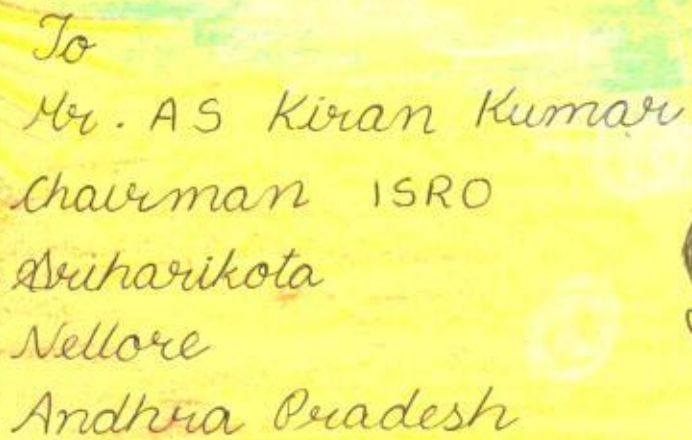 To
Mr. AS Kiran Kumar
Chairman ISRO
Sriharikota
Nellore
Andhra Pradesh